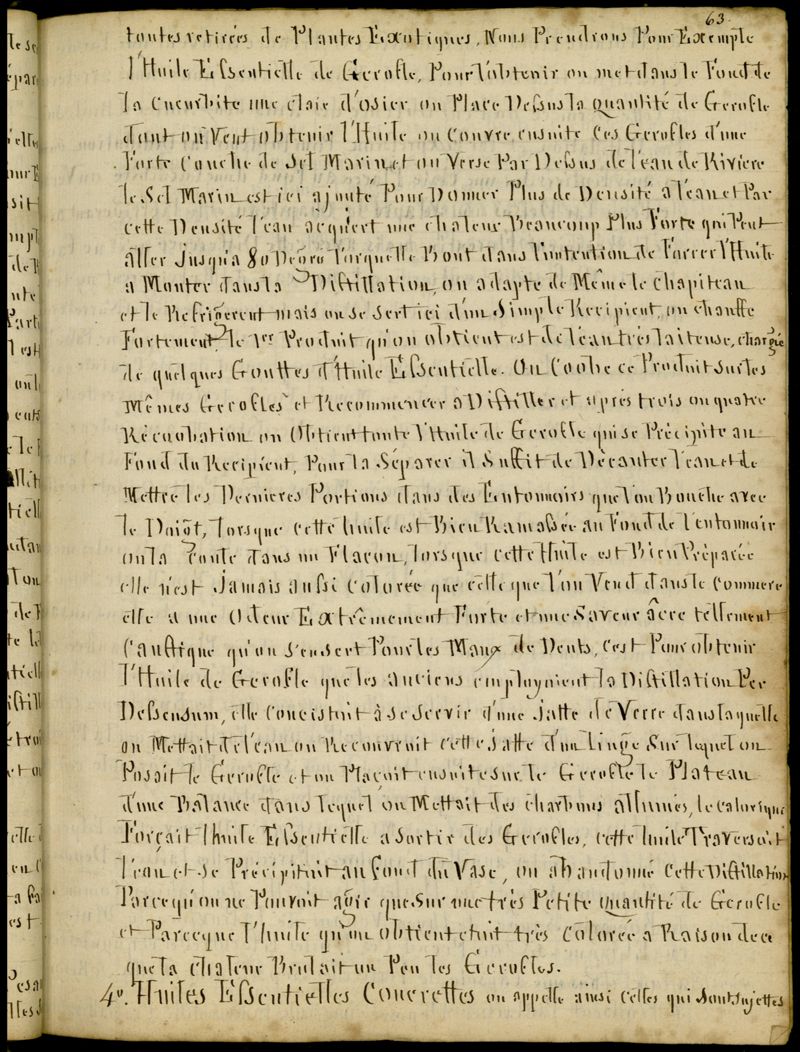 63.
toutes retirées de Plantes Exotiques, Nous Prendrons Pour Exemple
l'Huile Essentielle de Gerofle, Pour l'obtenir on met dans le Fond de
la Cucurbite une claie d'osier on Place Dessus la quantité de Gerofle
dont on Veut obtenir l'Huile on Couvre ensuite ces Gerofles d'une
Forte Couche de Sel Marin et on Verse Par Dessus de l'eau de Riviere
le Sel Marin est ici ajouté Pour Donner Plus de Densité a l'eau et Par
cette Densité l'eau acquiert une chaleur Beaucoup Plus Forte qui Peut
aller Jusqu'a 80 Degre Par quelle Bout dans l'intention de Forcer l'Huile
a Monter dans la Distillation, on adapte de Même le chapiteau
et le Refrigerent mais on se sert ici d'un Simple Recipient, on chauffe
Fortement le 1er Produit qu'on obtient est de l'eau très laiteuse, chargée
de quelques Gouttes d'Huile Essentielle. On Coobe ce Produit sur les
Mêmes Gerofles et Recommencer a Distiller et apres trois ou quatre
Récoobation on Obtient toute l'Huile de Gerofle qui se Précipite au
Fond du Recipient, Pour la Séparer il Suffit de Décanter l'eau et de
Mettre les Dernieres Portions dans des Entonnoirs que l'on Bouche avec
le Doigt, lorsque cette huile est Bien Ramassée au Fond de l'entonnoir
on la Coule dans un Flacon, lorsque cette Huile est Bien Préparée
elle n'est Jamais aussi Colorée que celle que l'on Vend dans le Commerce
elle a une Odeur Extrêmement Forte et une Saveur âcre tellement
Caustique qu'on s'en sert Pour les Maux de Dents, c'est Pour obtenir
l'Huile de Gerofle que les anciens employaient la Distillation Per
Dessensum, elle Concistait à se Servir d'une Jatte de Verre dans laquelle
on Mettait de l'eau on Recouvrait cette Jatte d'un linge Sur lequel on
Posait le Gerofle et on Placait ensuite sur le Gerofle le Plateau
d'une Balance dans lequel on Mettait des charbons allumés, le calorique
Forçait l'huile Essentielle a Sortir des Gerofles, cette huile Traversait
l'eau et se Précipitait au fond du Vase, on abandonné cette Distillation
Parcequ'on ne Pouvoit agir que sur une très Petite quantité de Gerofle
et Parceque l'huile qu'on obtient etait très Colorée a Raison de ce
que la chaleur Brulait un Peu les Gerofles.
4o. Huiles Essentielles Concrettes on appelle ainsi celles qui Sont Sujettes